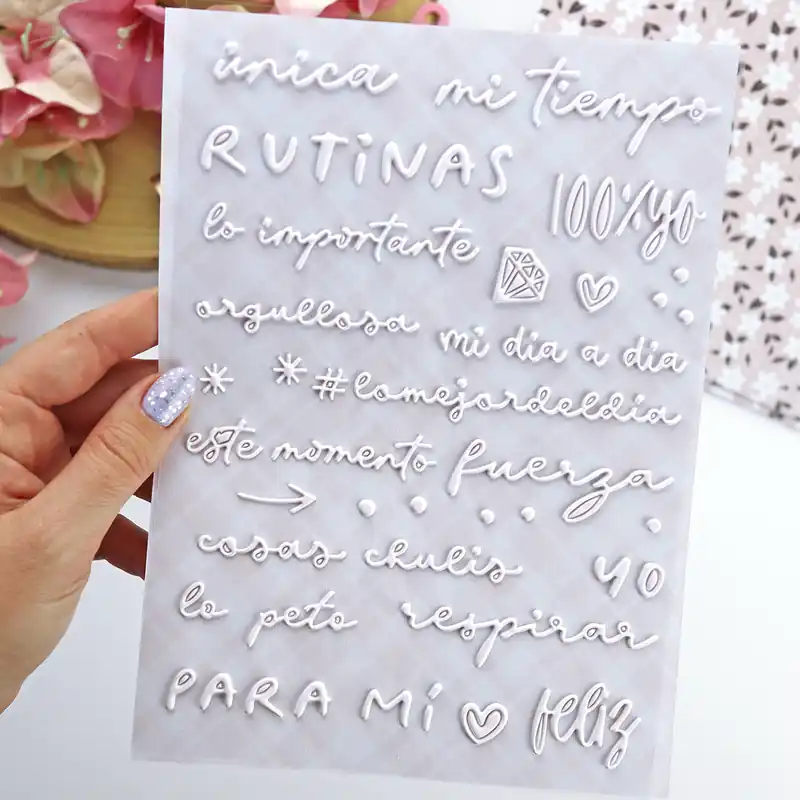 única mi tiempo
RUTINAS 100%yo
lo importante
orgullosa mi dia a dia
#lomejordeldia
este momento fuerza
cosas chulis yo
lo peto respirar
PARA MÍ feliz